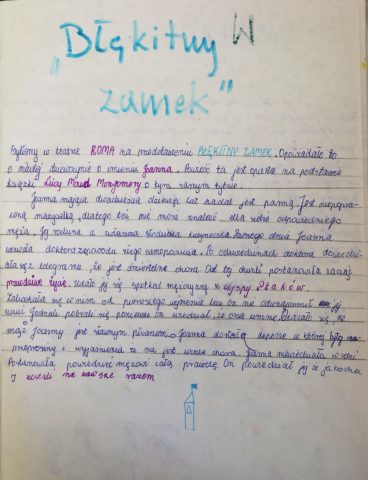 W
„Błękitny
zamek”
Byliśmy w teatrze ROMA na przedstawieniu BŁĘKITNY ZAMEK. Opowiadało to
o młodej dziewczynie o imieniu Joanna. Powieść ta jest oparta na podstawie
książki Lucy Maud Montgomery o tym samym tytule.
Joanna mająca dwadzieścia dziewięć lat nadal jest panną. Jest niepoprawioną
marzycielką, dlatego też nie może znaleźć dla siebie odpowiedniego
męża. Jej rodzina
dnia Joanna
doktora
doktora
się z
że jest śmiertelnie chora. Od tej chwili postanowiła zacząć
prawdziwe życie. Udało jej się spotkać mężczyznę z wyspy Ptaków.
Zakochała się w nim od pierwszego wejrzenia lecz on nie odwzajemnił jej
uczuć. Jednak pobrali się ponieważ on wiedział, że ona umrze. Okazało się, że
mąż Joanny jest sławnym pisarzem. Joanna dostała depesze w której były
przeprosiny i wyjaśnienia że nie jest wcale chora. Joanna
Postanowiła powiedzieć mężowi całą prawdę. On powiedział jej że ją kocha
i zostali na zawsze razem